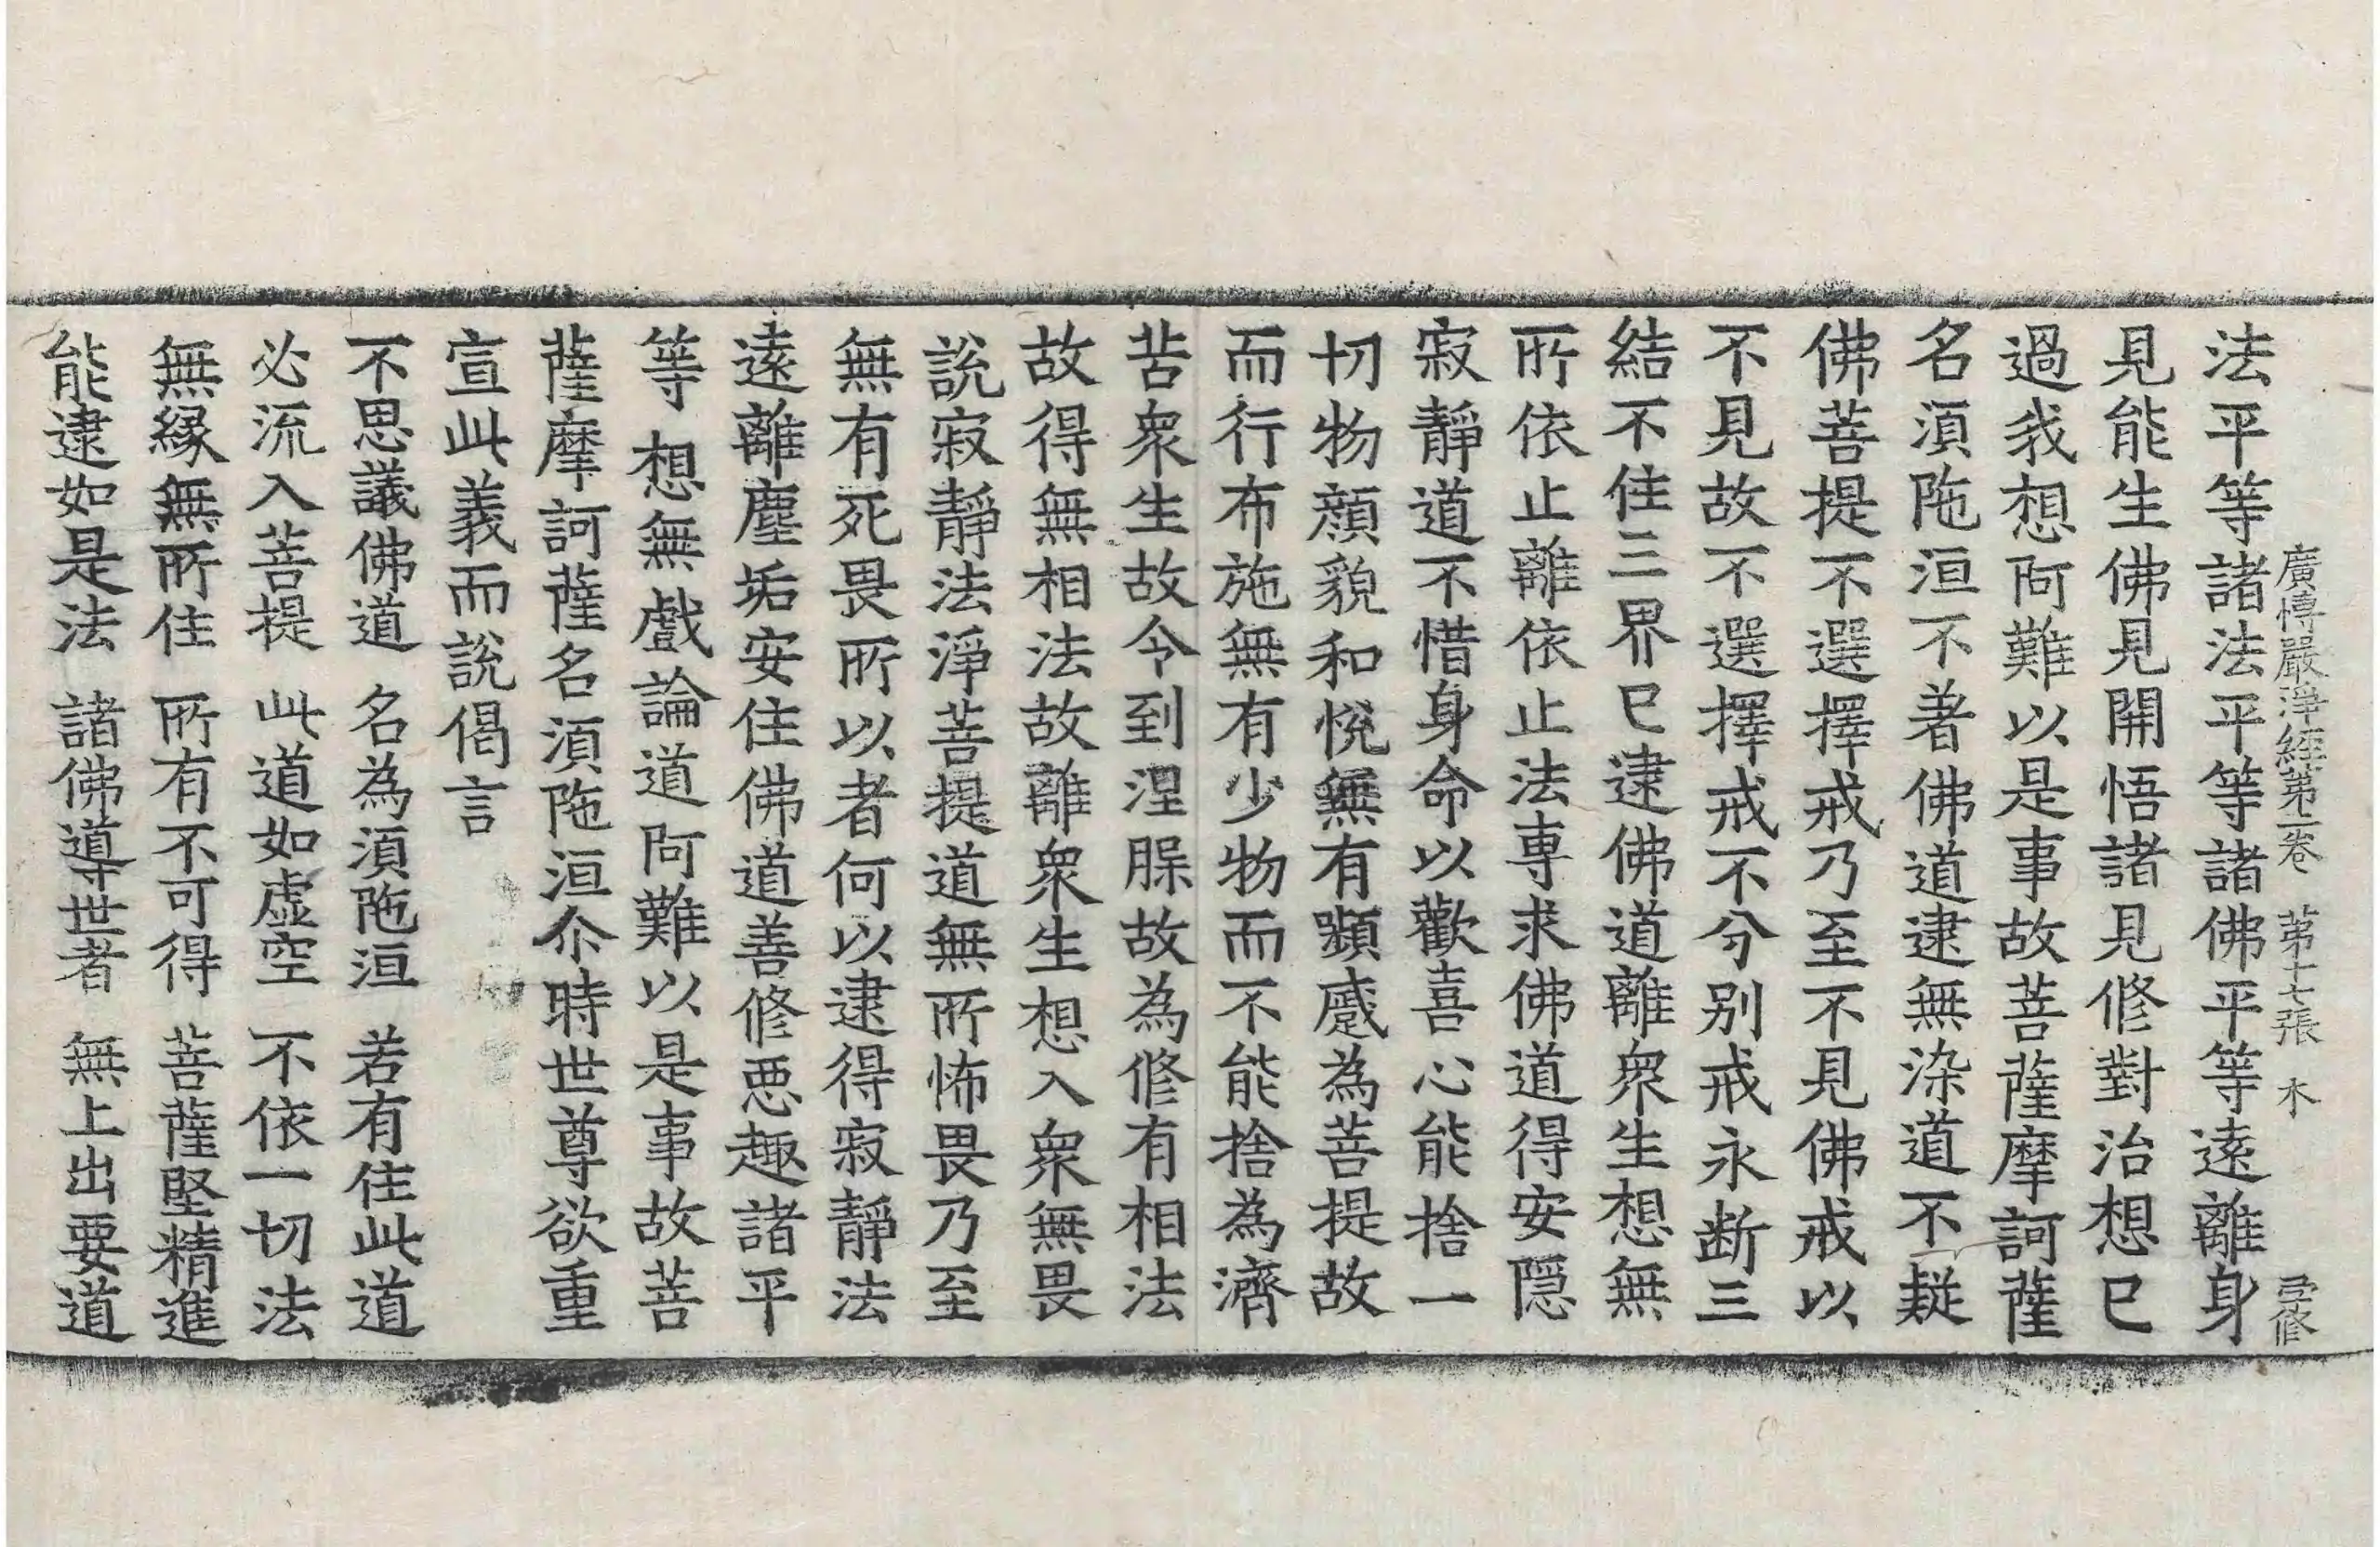 廣博嚴淨經第二卷 第十七張 木 彐修
法平等諸法平等諸佛平等遠離身
見能生佛見開悟諸見修對治想已
過我想阿難以是事故菩薩摩訶薩
名湏陁洹不著佛道逮無染道不疑
佛菩提不選擇戒乃至不見佛戒以
不見故不選擇戒不分别戒永断三
結不住三界已逮佛道離衆生想無
所依止離依止法專求佛道得安隠
寂靜道不惜身命以歡喜心能捨一
切物顔貌和悅無有顰蹙為菩提故
而行布施無有少物而不能捨為濟
苦衆生故令到涅腜故為修有相法
故得無相法故離衆生想入衆無畏
說寂靜法淨菩提道無所怖畏乃至
無有死畏所以者何以逮得寂靜法
遠離塵垢安住佛道善修惡趣諸平
等想無戲論道阿難以是事故菩
薩摩訶薩名湏陁洹尒時世尊欲重
宣此義而說偈言
不思議佛道 名為湏陁洹 若有住此道
必流入菩提 此道如虚空 不依一切法
無緣無所住 所有不可得 菩薩堅精進
能逮如是法 諸佛導世者 無上出要道